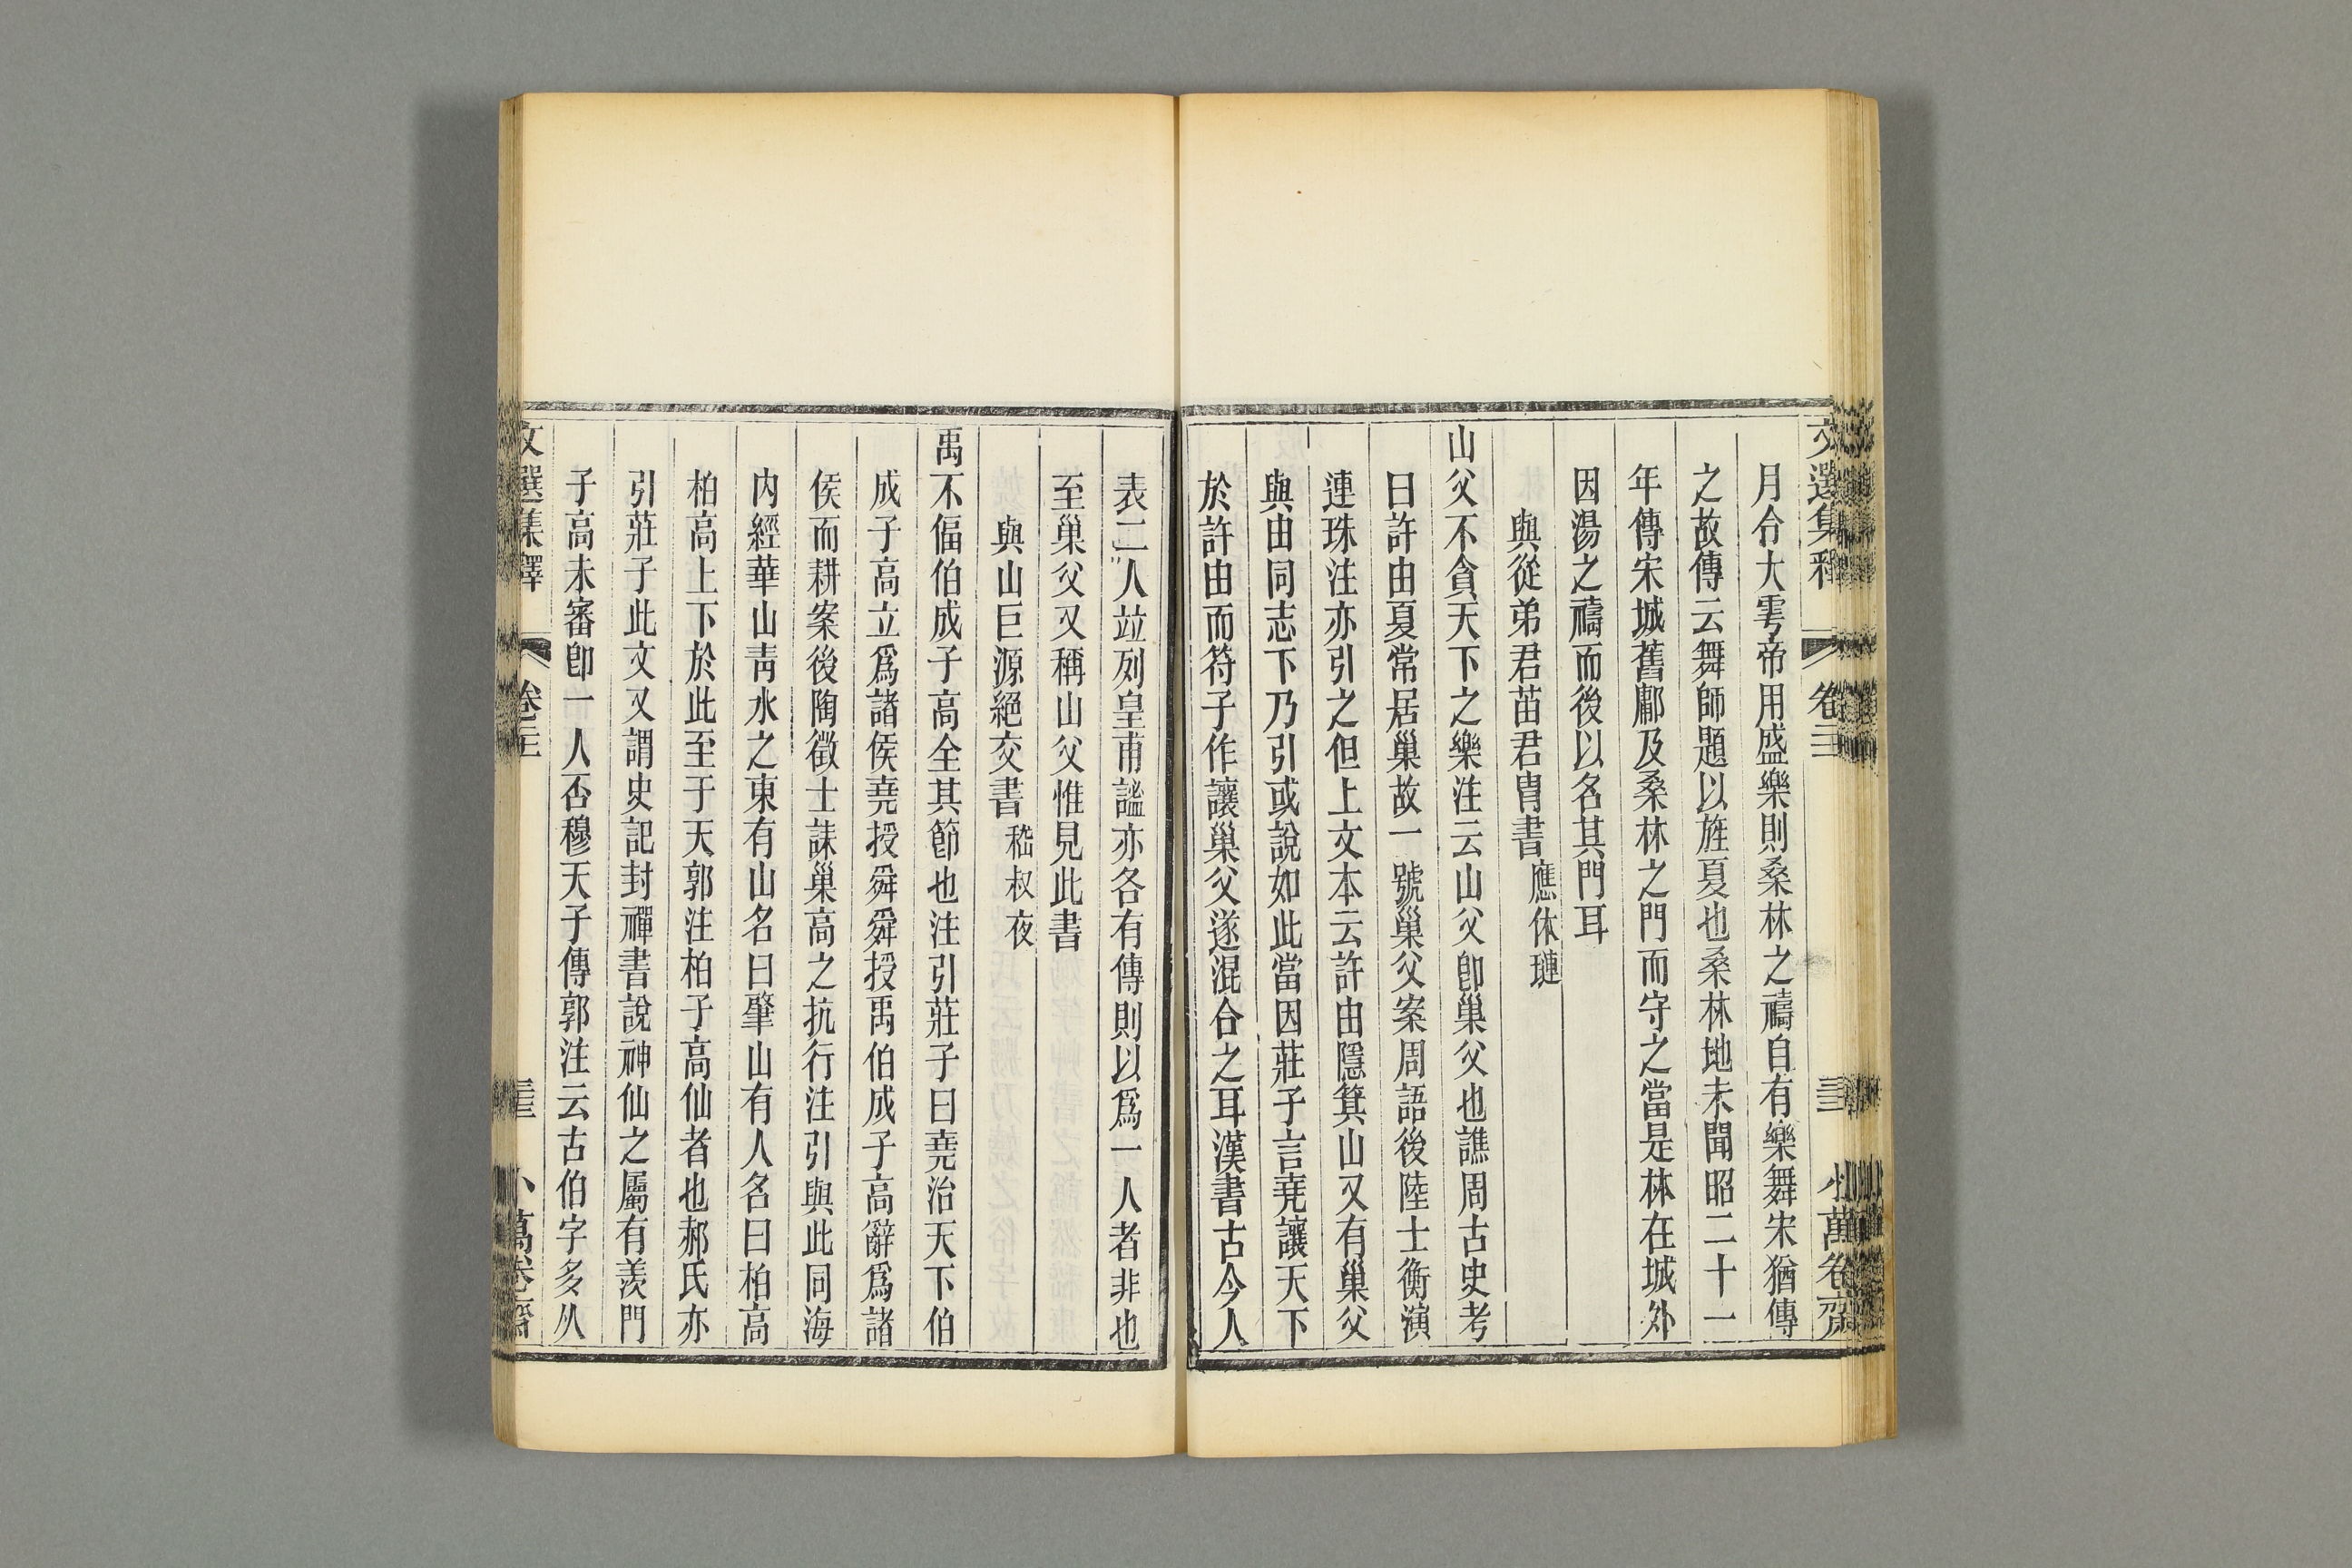 文選集釋 卷二十 小萬卷齋
月令大雩帝用盛樂則桑林之禱自有樂舞宋猶傳
之故傳云舞師題以旌夏也桑林地未聞昭二十一
年傳宋城舊鄘及桑林之門而守之當是林在城外
因湯之禱而後以名其門耳
與從弟君苗君冑書應休璉
山父不貪天下之樂注云山父卽巢父也譙周古史考
曰許由夏常居巢故一號巢父案周語後陸士衡演
連珠注亦引之但上文本云許由隱箕山又有巢父
與由同志下乃引或說如此當因莊子言堯讓天下
於許由而符子作讓巢父遂混合之耳漢書古今人
表二人竝列皇甫謐亦各有傳則以爲一人者非也
至巢父又稱山父惟見此書
與山巨源絕交書嵇叔夜
禹不偪伯成子高全其節也注引莊子曰堯治天下伯
成子高立爲諸侯堯授舜舜授禹伯成子高辭爲諸
侯而耕案後陶徵士誄巢高之抗行注引與此同海
內經華山靑水之東有山名曰肇山有人名曰柏高
柏高上下於此至于天郭注柏子高仙者也郝氏亦
引莊子此文又謂史記封禪書說神仙之屬有羨門
子高未審卽一人否穆天子傳郭注云古伯字多从
文選集釋 卷二十 小萬卷齋